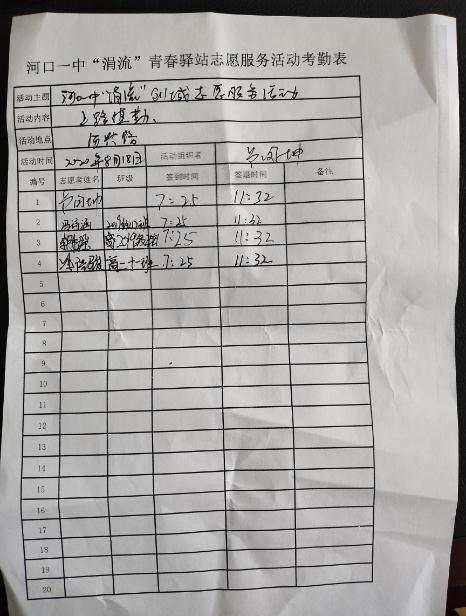 河口一中“涓流”青春驿站志愿服务活动考勤表
活动主题 河口一中“涓流”创城志愿服务活动
活动内容 上路值勤、
活动地点
活动时间 2020年8月18日 活动组织者
编号 志愿者姓名 班级 签到时间 签退时间 备注
1 7:25 11:32
2 7:25 11:32
3 7:25 11:32
4 高二十班 7:25 11:32
5
6
7
8
9
10
11
12
13
14
15
16
17
18
19
20